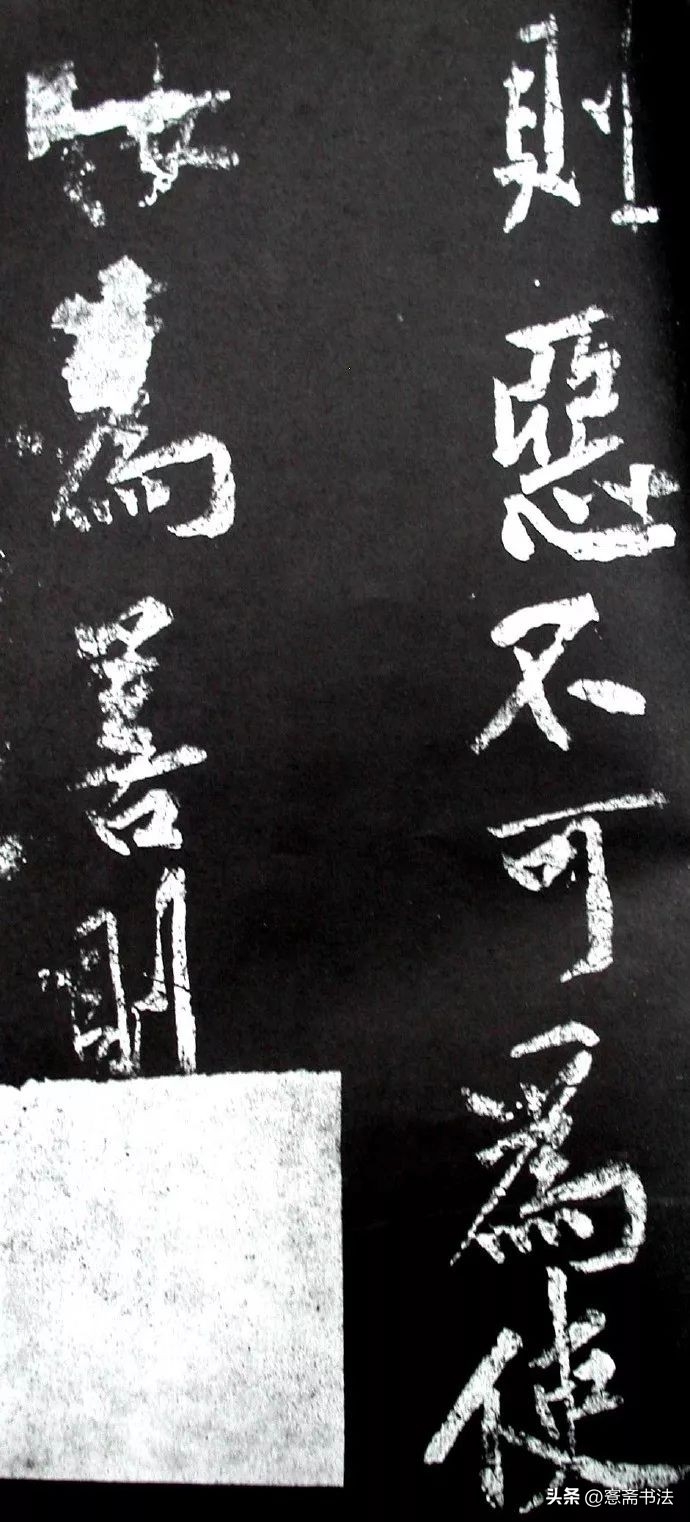 則惡不可為使
汝為善則
头条 @窓斋书法